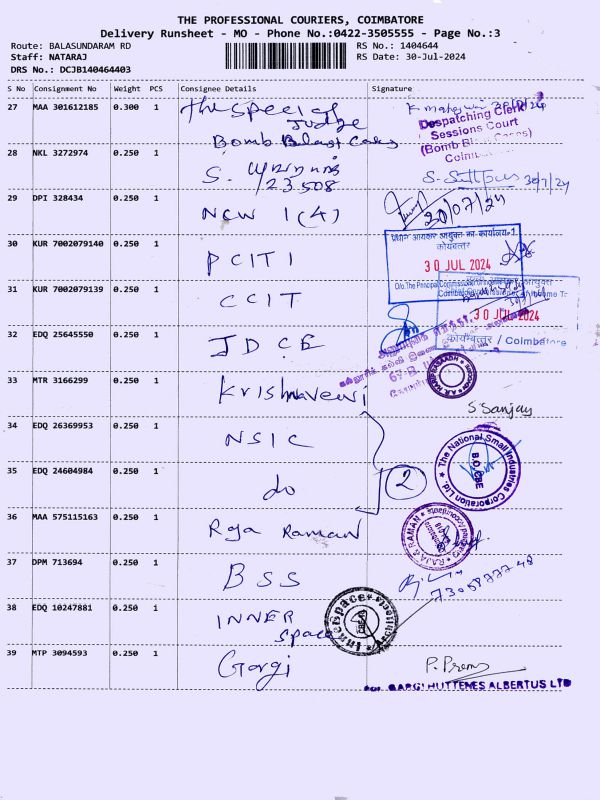 THE PROFESSIONAL COURIERS, COIMBATORE
Delivery Runsheet - MO - Phone No.:0422-3505555 - Page No.:3
Route: BALASUNDARAM RD
RS No.: 1404644
Staff: NATARAJ
RS Date: 30-Jul-2024
DRS No.: DCJB140464403
S No Consignment No Weight PCS Consignee Details Signature
27 MAA 301612185 0.300 1 The Special Judge
Bomb Blast Cases
Despatching Clerk
Sessions Court
(Bomb Blast Cases)
28 NKL 3272974 0.250 1 S.
/23508
30/7/24
29 DPI 328434 0.250 1 NCW 1(4)
30/07/24
30 KUR 7002079140 0.250 1 PCIT 1
प्रधान आयकर आयुक्त का कार्यालय-1
कोयम्बत्तूर
30 JUL 2024
31 KUR 7002079139 0.250 1 CCIT
30 JUL 2024
कोयम्बत्तूर / Coimbatore
32 EDQ 25645550 0.250 1 JDCE
33 MTR 3166299 0.250 1 Krishnaveni
S Sanjay
34 EDQ 26369953 0.250 1 NSIC
The National Small Industries Corporation Ltd.
B.O. CBE
35 EDQ 24604984 0.250 1 do
2
36 MAA 575115163 0.250 1 Raja Raman
RAJA RAMAN
Chartered Accountants
37 DPM 713694 0.250 1 BSS
38 EDQ 10247881 0.250 1 INNER
Space
39 MTP 3094593 0.250 1 Gargi
P. Prem
GARGI HUTTENES ALBERTUS LTD